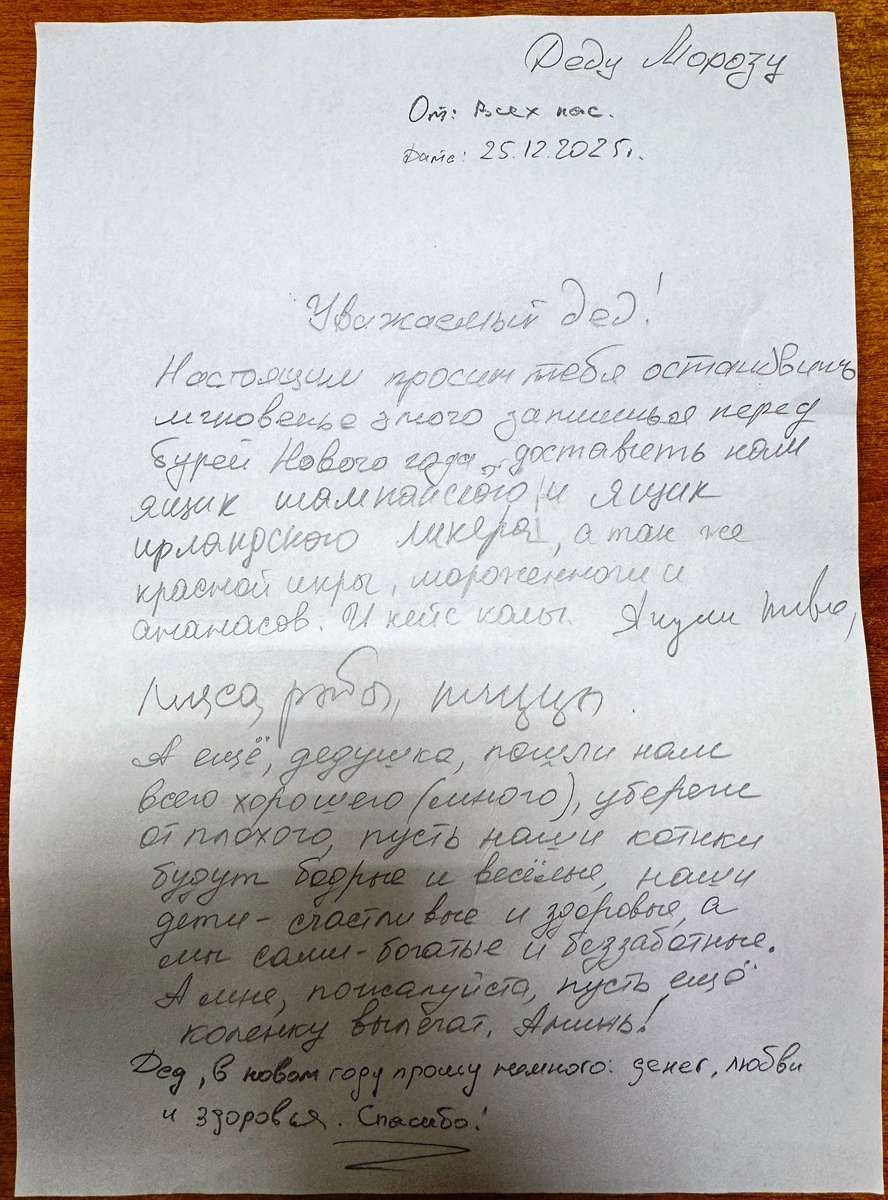 Деду Морозу
От: Всех нас.
Дата: 25.12.2025г.
Уважаемый дед!
Настоящим просим тебя остановить
мгновенье этого затишья перед
бурей Нового года, доставить нам
ящик шампанского и ящик
ирландского ликёра, а так же
красной икры, мороженного и
ананасов. И кейс колы. Ящик пива,
мяса, рыбы, пиццы.
А ещё, дедушка, пошли нам
всего хорошего (много), убереги
от плохого, пусть наши котики
будут бодрые и весёлые, наши
дети - счастливые и здоровые, а
мы сами - богатые и беззаботные.
А мне, пожалуйста, пусть ещё
коленку вылечат. Аминь!
Дед, в новом году прошу немного: денег, любви
и здоровья. Спасибо!